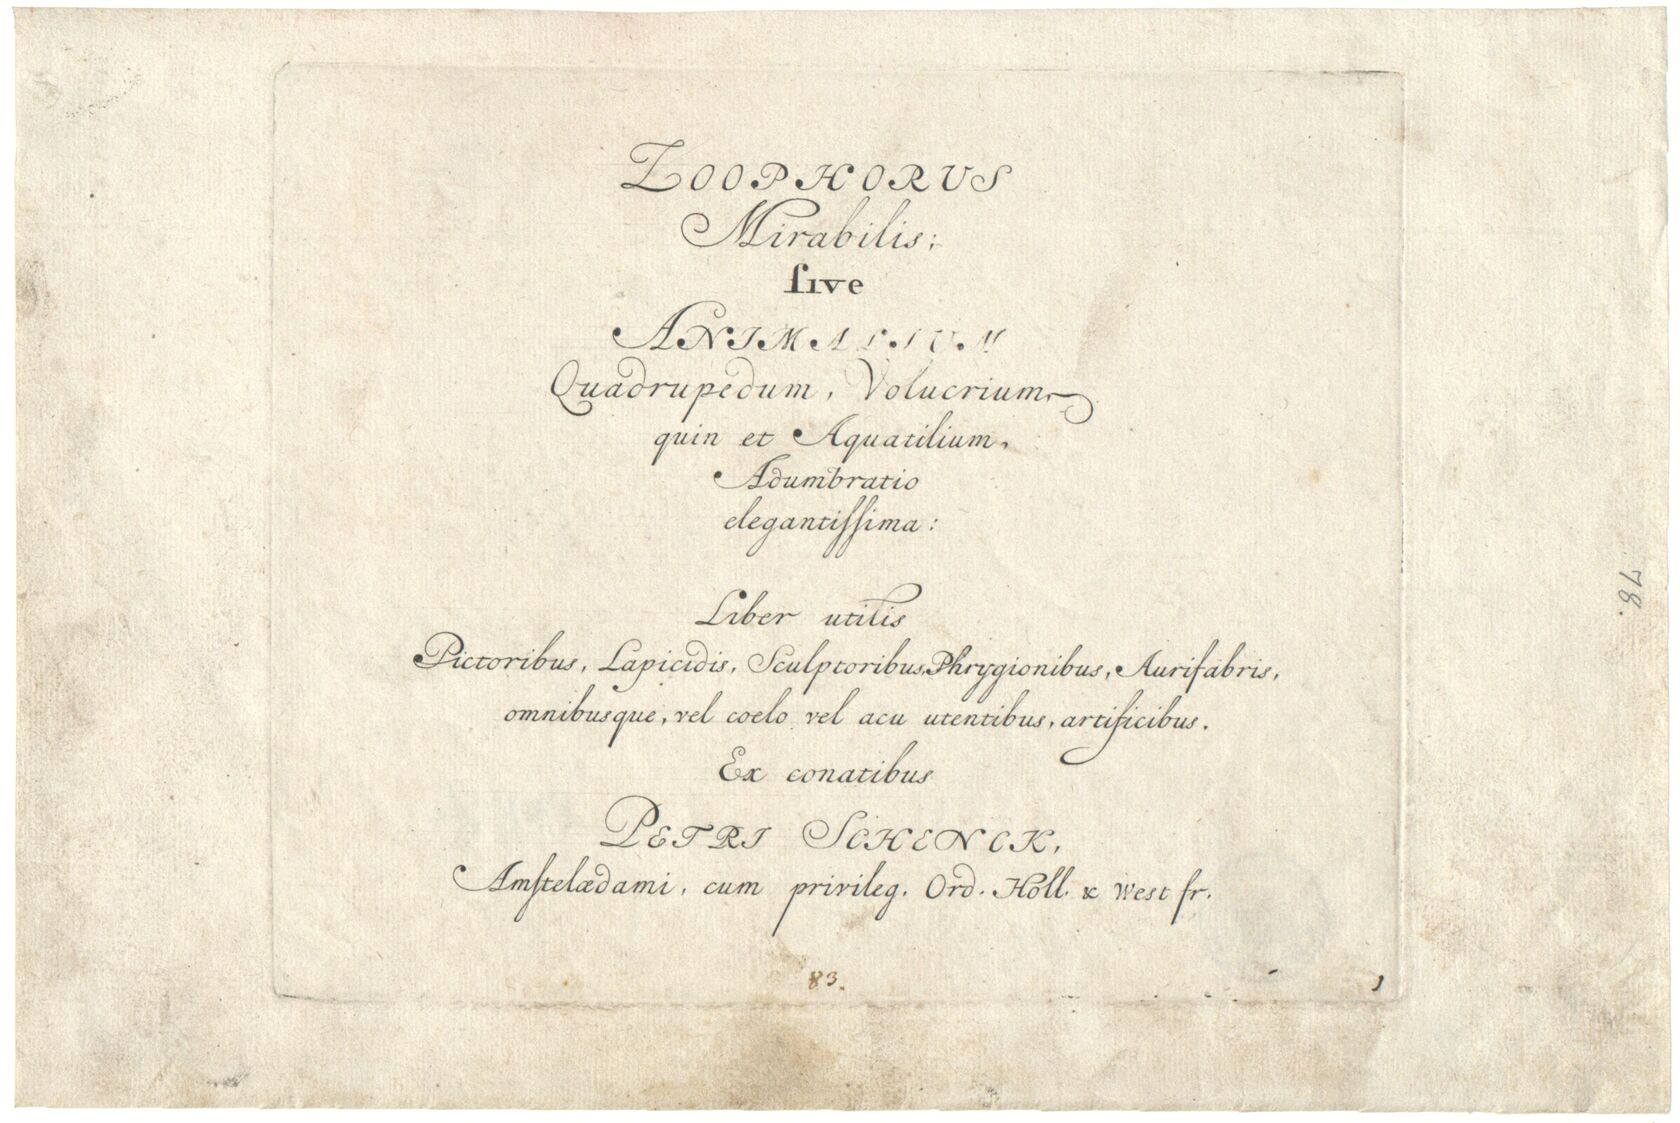 ZOOPHORUS
Mirabilis;
ſive
ANIMALIUM
Quadrupedum, Volucrium,
quin et Aquatilium,
Adumbratio
elegantiſſima:
Liber utilis
Pictoribus, Lapicidis, Sculptoribus, Phrygionibus, Aurifabris,
omnibusque, vel coelo vel acu utentibus, artificibus.
Ex conatibus
PETRI SCHENCK,
Amſtelædami, cum privileg. Ord. Holl. & West fr.
83.
1
78.